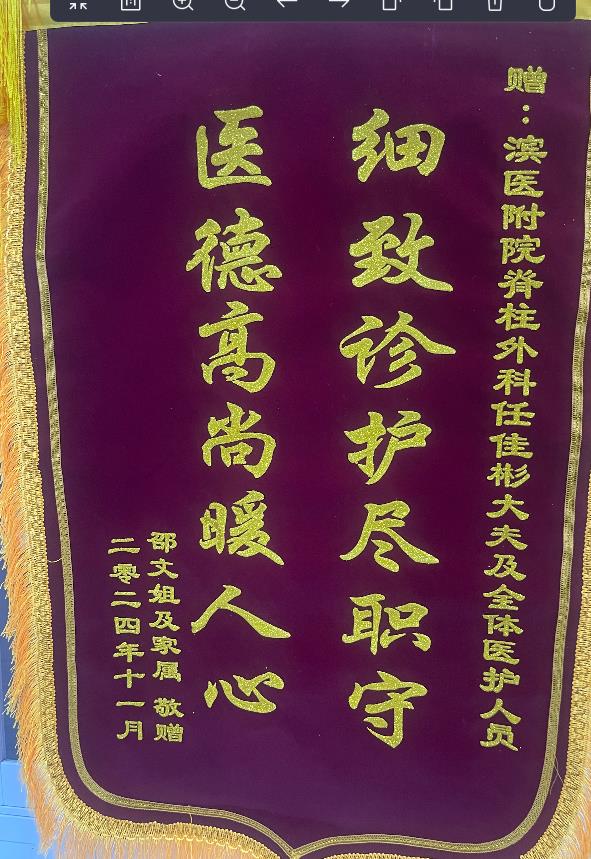 赠：滨医附院脊柱外科任佳彬大夫及全体医护人员
细致诊护尽职守
医德高尚暖人心
邵文姐及家属 敬赠
二零二四年十一月